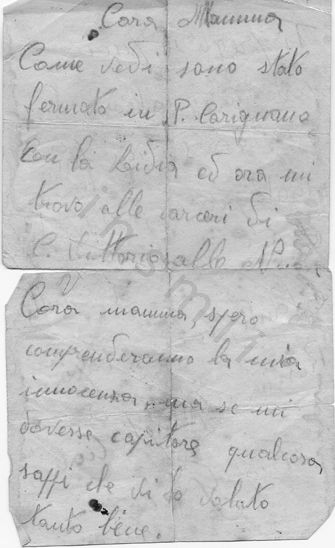 Cara Mamma
Come vedi sono stato
fermato in P. Carignano
con la Lidia ed ora mi
trovo alle carceri di
C. Vittorio alle
Cara mamma, spero
comprenderanno la mia
innocenza, ma se mi
dovesse capitare qualcosa
sappi che vi ho voluto
tanto bene.